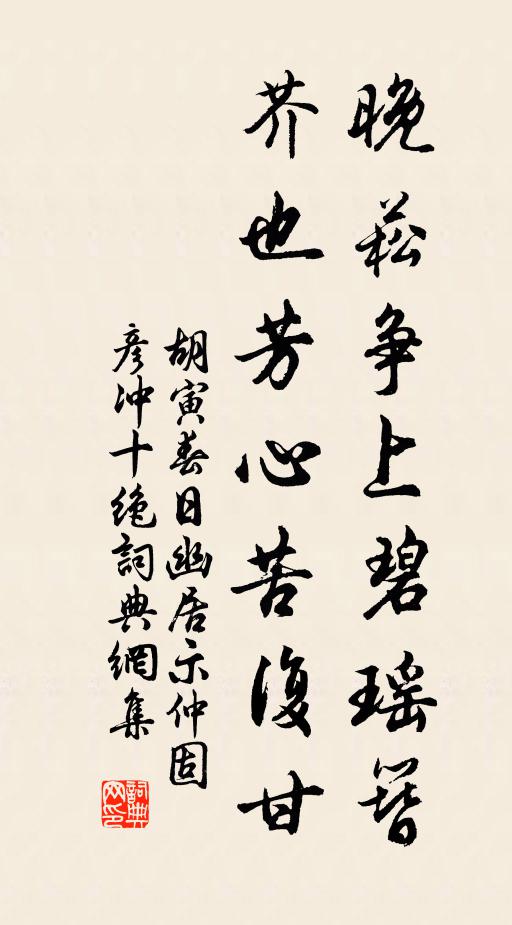 晚菘争上碧瑶簪
芥也芳心苦復甘
胡寅春日幽居示仲固
彦冲十绝詞典網集
詞典网印